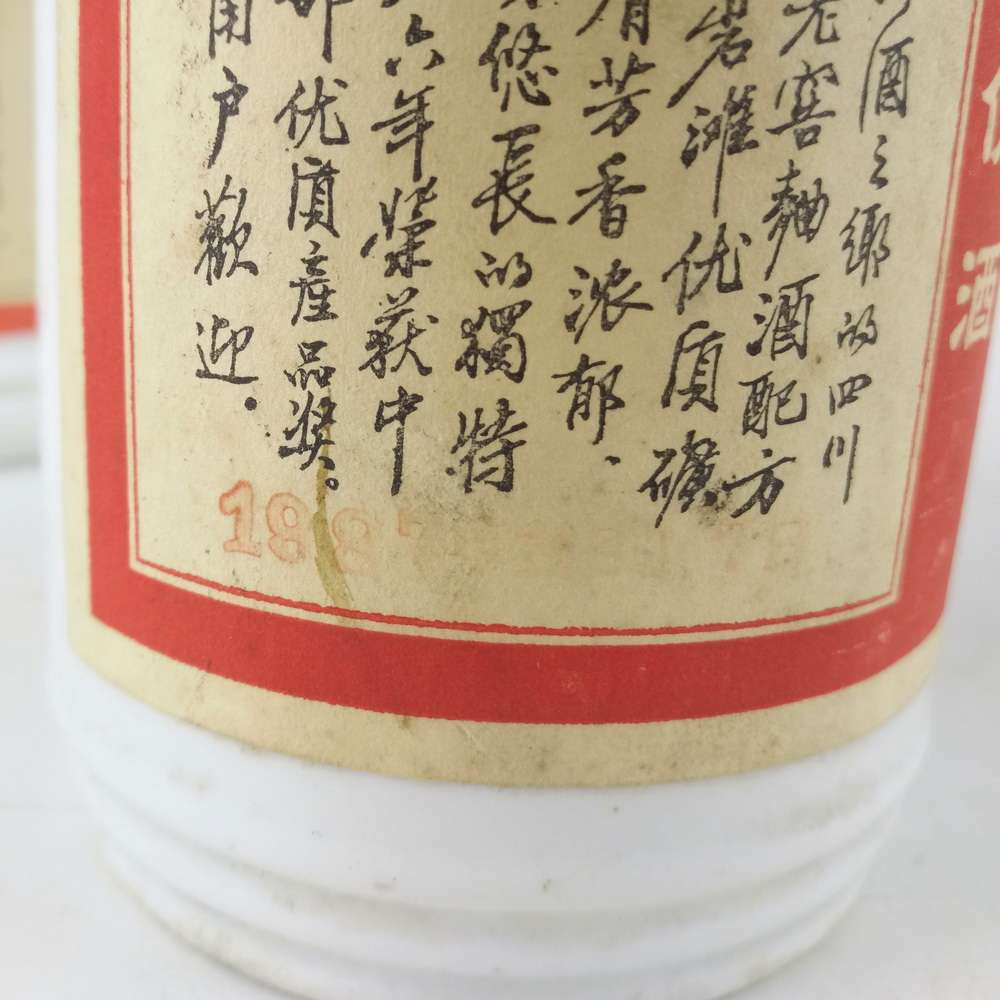 酒之鄉的四川
老窖麯酒配方
岩滩优质礦
芳香浓郁、
悠長的獨特
六年榮获中
优質產品奖。
用户歡迎。
酒
198